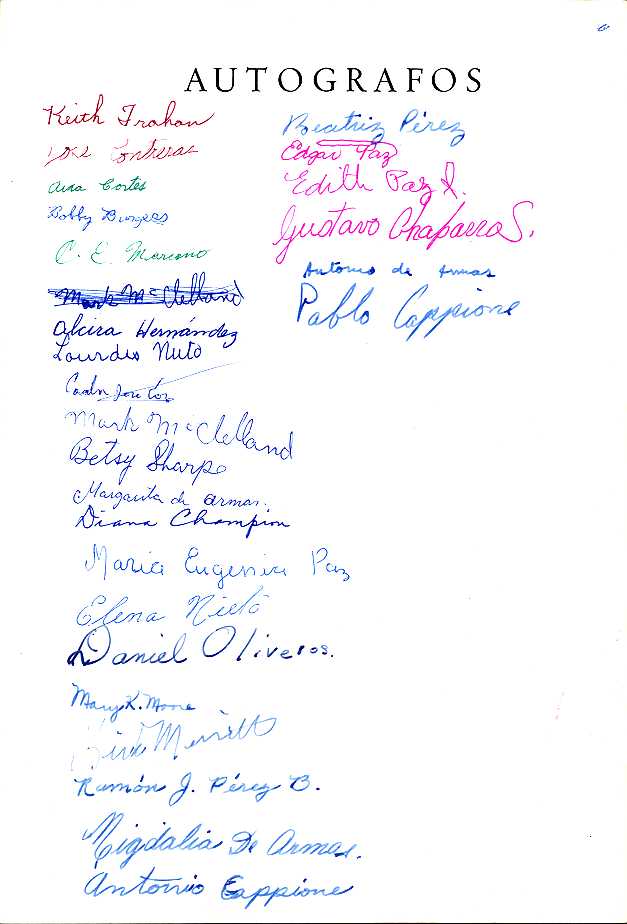 AUTOGRAFOS
Keith Trahan
Contreras
Ana Cortes
Bobby Burgess
C. E. Marcano
Mark McClelland
Alcira Hernández
Lourdes Nieto
Mark McClelland
Betsy Sharpe
Margarita de Armas.
Diana Champion
Maria Eugenia Paz
Elena Nieto
Daniel Oliveros.
Mary K. Moore
Merritt
Ramón J. Pérez B.
Migdalia De Armas.
Antonio Cappione
Beatriz Pérez
Edgar Paz
Edith Paz
Gustavo Chaparro S.
Antonio de Armas
Pablo Cappione